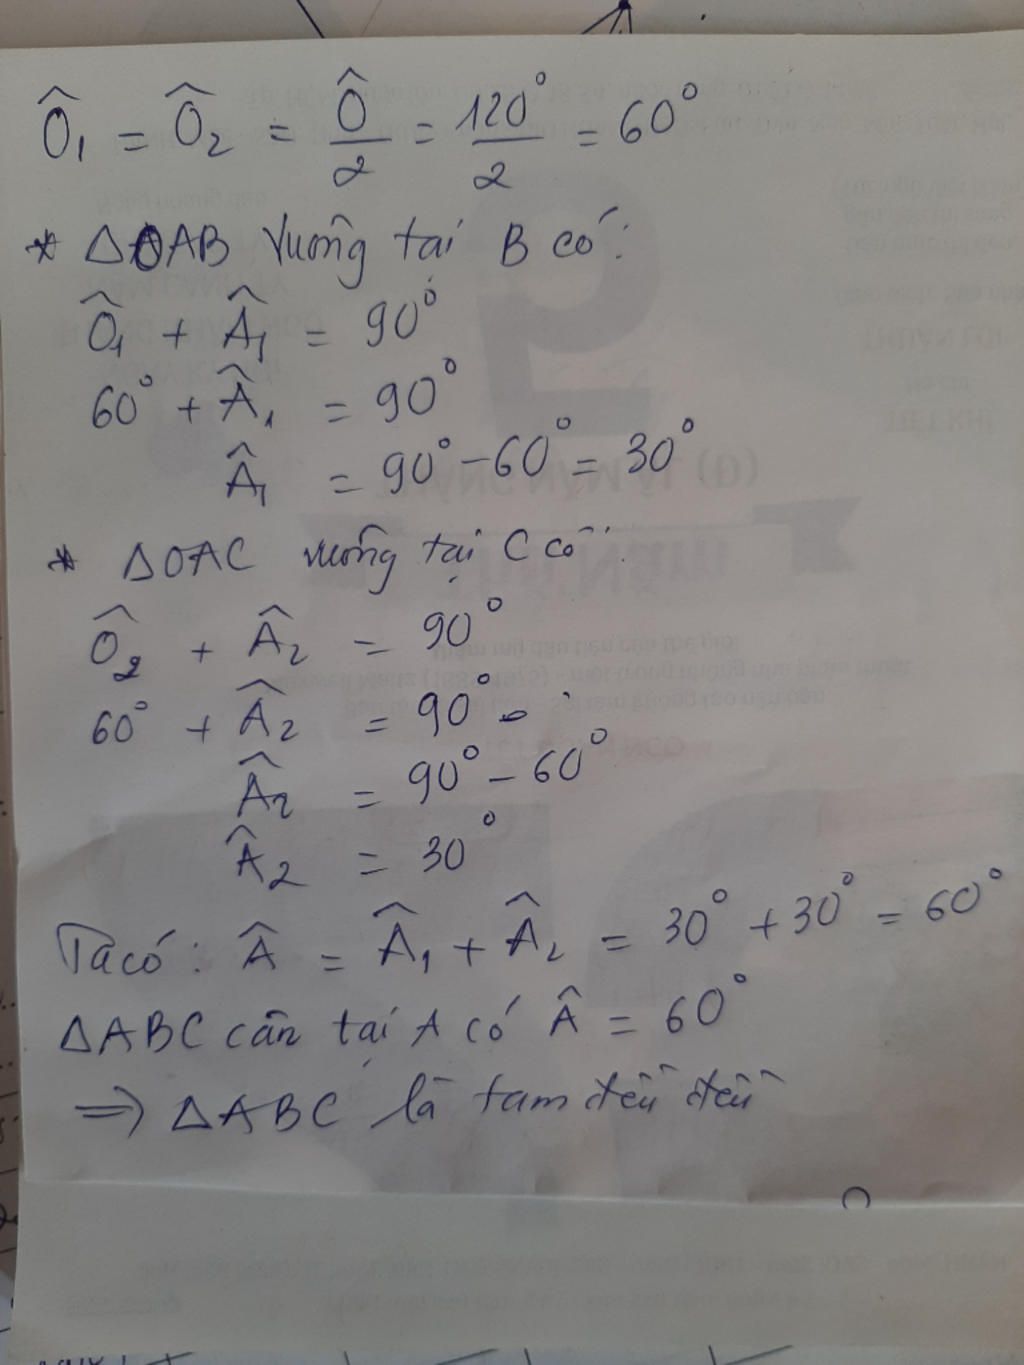 Ô₁ = Ô₂ = Ô/2 = 120°/2 = 60°
* ΔOAB vuông tại B có:
Ô₁ + Â₁ = 90°
60° + Â₁ = 90°
Â₁ = 90° - 60° = 30°
* ΔOAC vuông tại C có:
Ô₂ + Â₂ = 90°
60° + Â₂ = 90°
Â₂ = 90° - 60°
Â₂ = 30°
Ta có: Â = Â₁ + Â₂ = 30° + 30° = 60°
ΔABC cân tại A có Â = 60°
=> ΔABC là tam đều đều